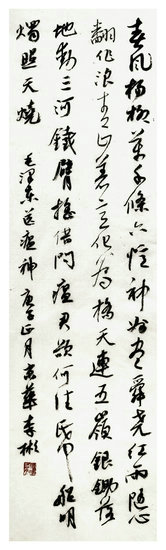 春风杨柳萬千條六億神州尽舜尧红雨随心
翻作浪青山着意化為橋天連五嶺銀鋤落
地動三河鐵臂摇借問瘟君欲何往纸船明
燭照天燒 毛澤東送瘟神 庚子正月京華李彬